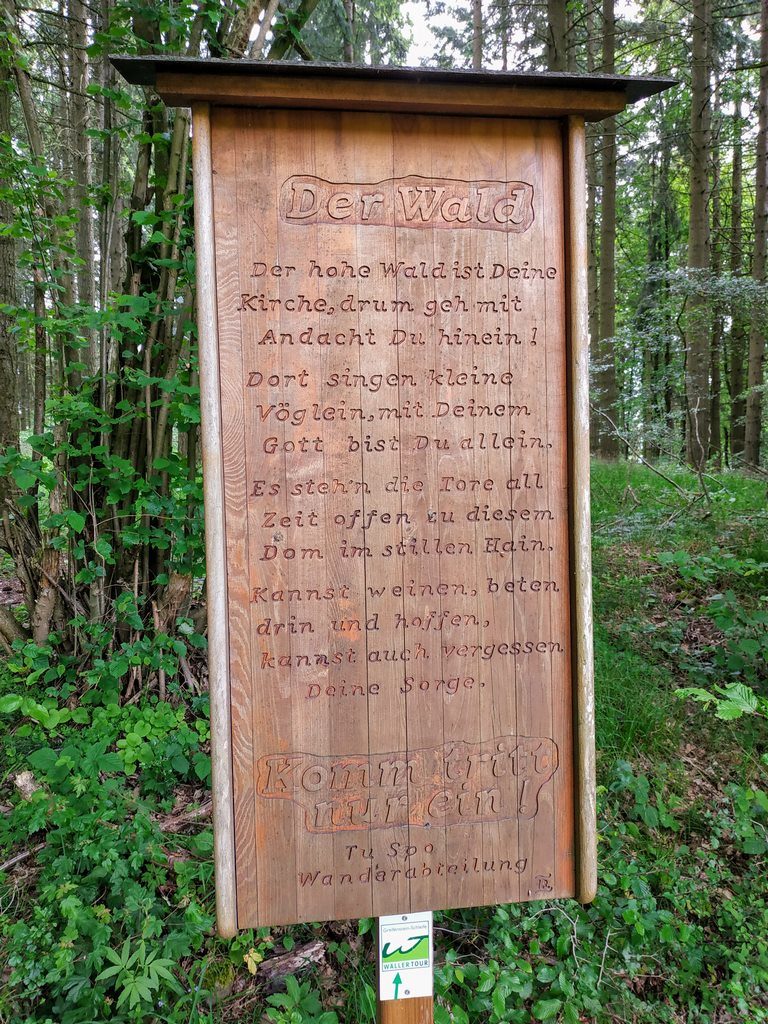 Der Wald
Der hohe Wald ist Deine
Kirche, drum geh mit
Andacht Du hinein!
Dort singen kleine
Vöglein, mit Deinem
Gott bist Du allein.
Es steh'n die Tore all
Zeit offen zu diesem
Dom im stillen Hain.
Kannst weinen, beten
drin und hoffen,
kannst auch vergessen
Deine Sorge.
Komm tritt
nur ein!
Tu Spo
Wanderabteilung
Greifenstein-Schleife
WALLERTOUR